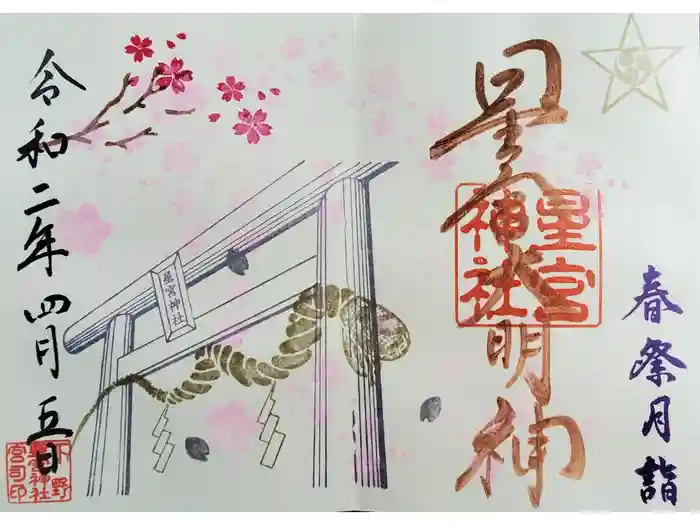 春祭月詣
星大明神
星宮
神社
星宮神社
令和二年四月五日
下野
星宮神社
宮司印